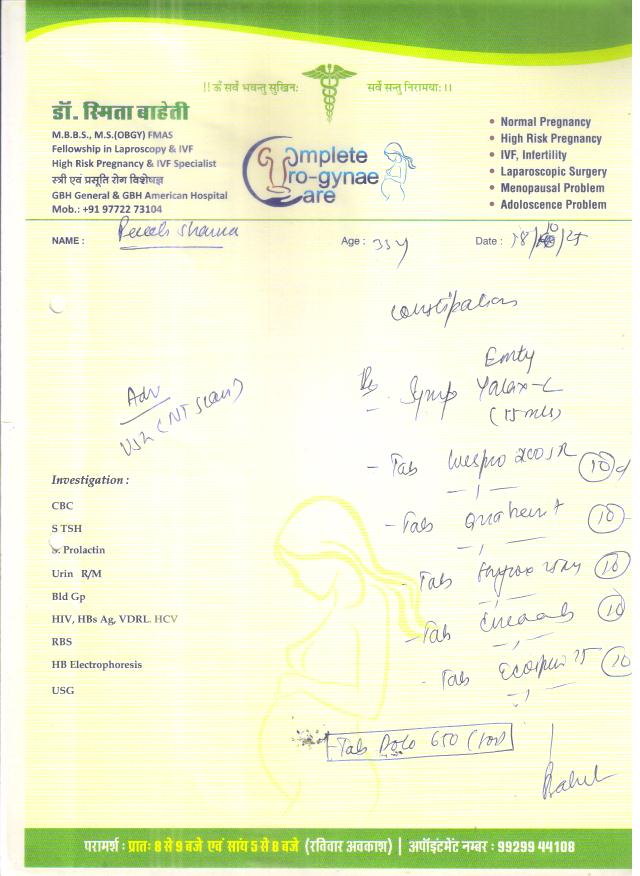 !! ॐ सर्वे भवन्तु सुखिनः सर्वे सन्तु निरामयाः ।।
डॉ. स्मिता बाहेती
M.B.B.S., M.S.(OBGY) FMAS
Fellowship in Laproscopy & IVF
High Risk Pregnancy & IVF Specialist
स्त्री एवं प्रसूति रोग विशेषज्ञ
GBH General & GBH American Hospital
Mob.: +91 97722 73104
Complete
Uro-gynae
Care
• Normal Pregnancy
• High Risk Pregnancy
• IVF, Infertility
• Laparoscopic Surgery
• Menopausal Problem
• Adoloscence Problem
NAME : Sharma Age : 33y Date :
Constipation
Adv
USG (NT Scan)
Rx
Syrup
(15 mls)
- Tab SR 10
- Tab 10
- Tab 25 10
- Tab 10
- Tab Ecosprin 75 10
Tab Dolo 650 (SOS)
Investigation :
CBC
S TSH
S. Prolactin
Urin R/M
Bld Gp
HIV, HBs Ag, VDRL. HCV
RBS
HB Electrophoresis
USG
परामर्श : प्रातः 8 से 9 बजे एवं सांय 5 से 8 बजे (रविवार अवकाश) | अपॉइंटमेंट नम्बर : 99299 44108